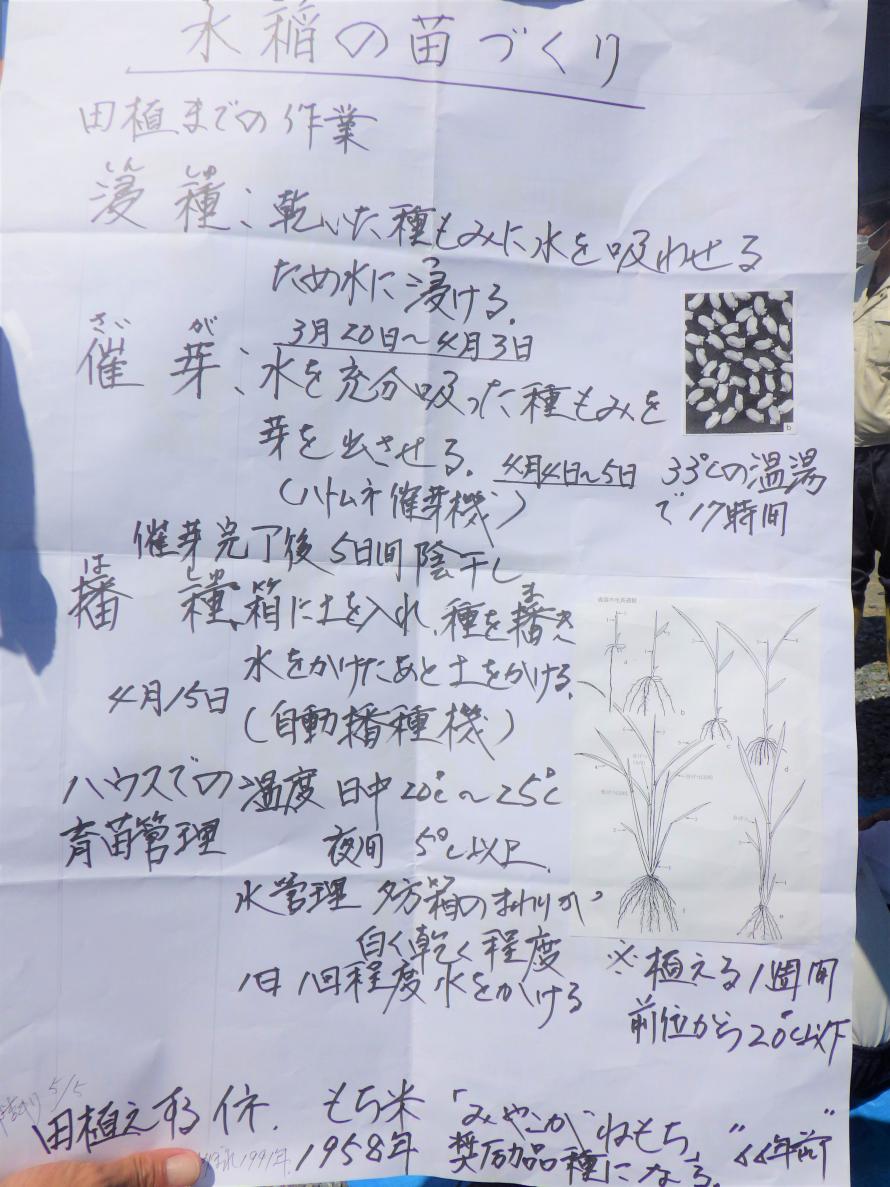 水稲の苗づくり
田植までの作業
しん しゅ
浸種: 乾いた種もみに水を吸わせる
ため水に浸ける。
3月20日~4月3日
さい が
催芽: 水を充分吸った種もみを
芽を出させる。 4月4日~5日 33℃の温湯
で17時間
(ハトムネ催芽機)
催芽完了後5日間陰干し
は しゅ
播種、箱に土を入れ、種を播き
水をかけたあと土をかける。
4月15日
(自動播種機)
ハウスでの 温度 日中20℃~25℃
育苗管理 夜間 5℃以上
水管理 夕方箱のまわりが
白く乾く程度
1日1回程度水をかける
※植える1週間
前位から20℃以下
5/5
田植えする イネ もち米 「みやこがねもち」
1991年 1958年 奨励品種になる。
b